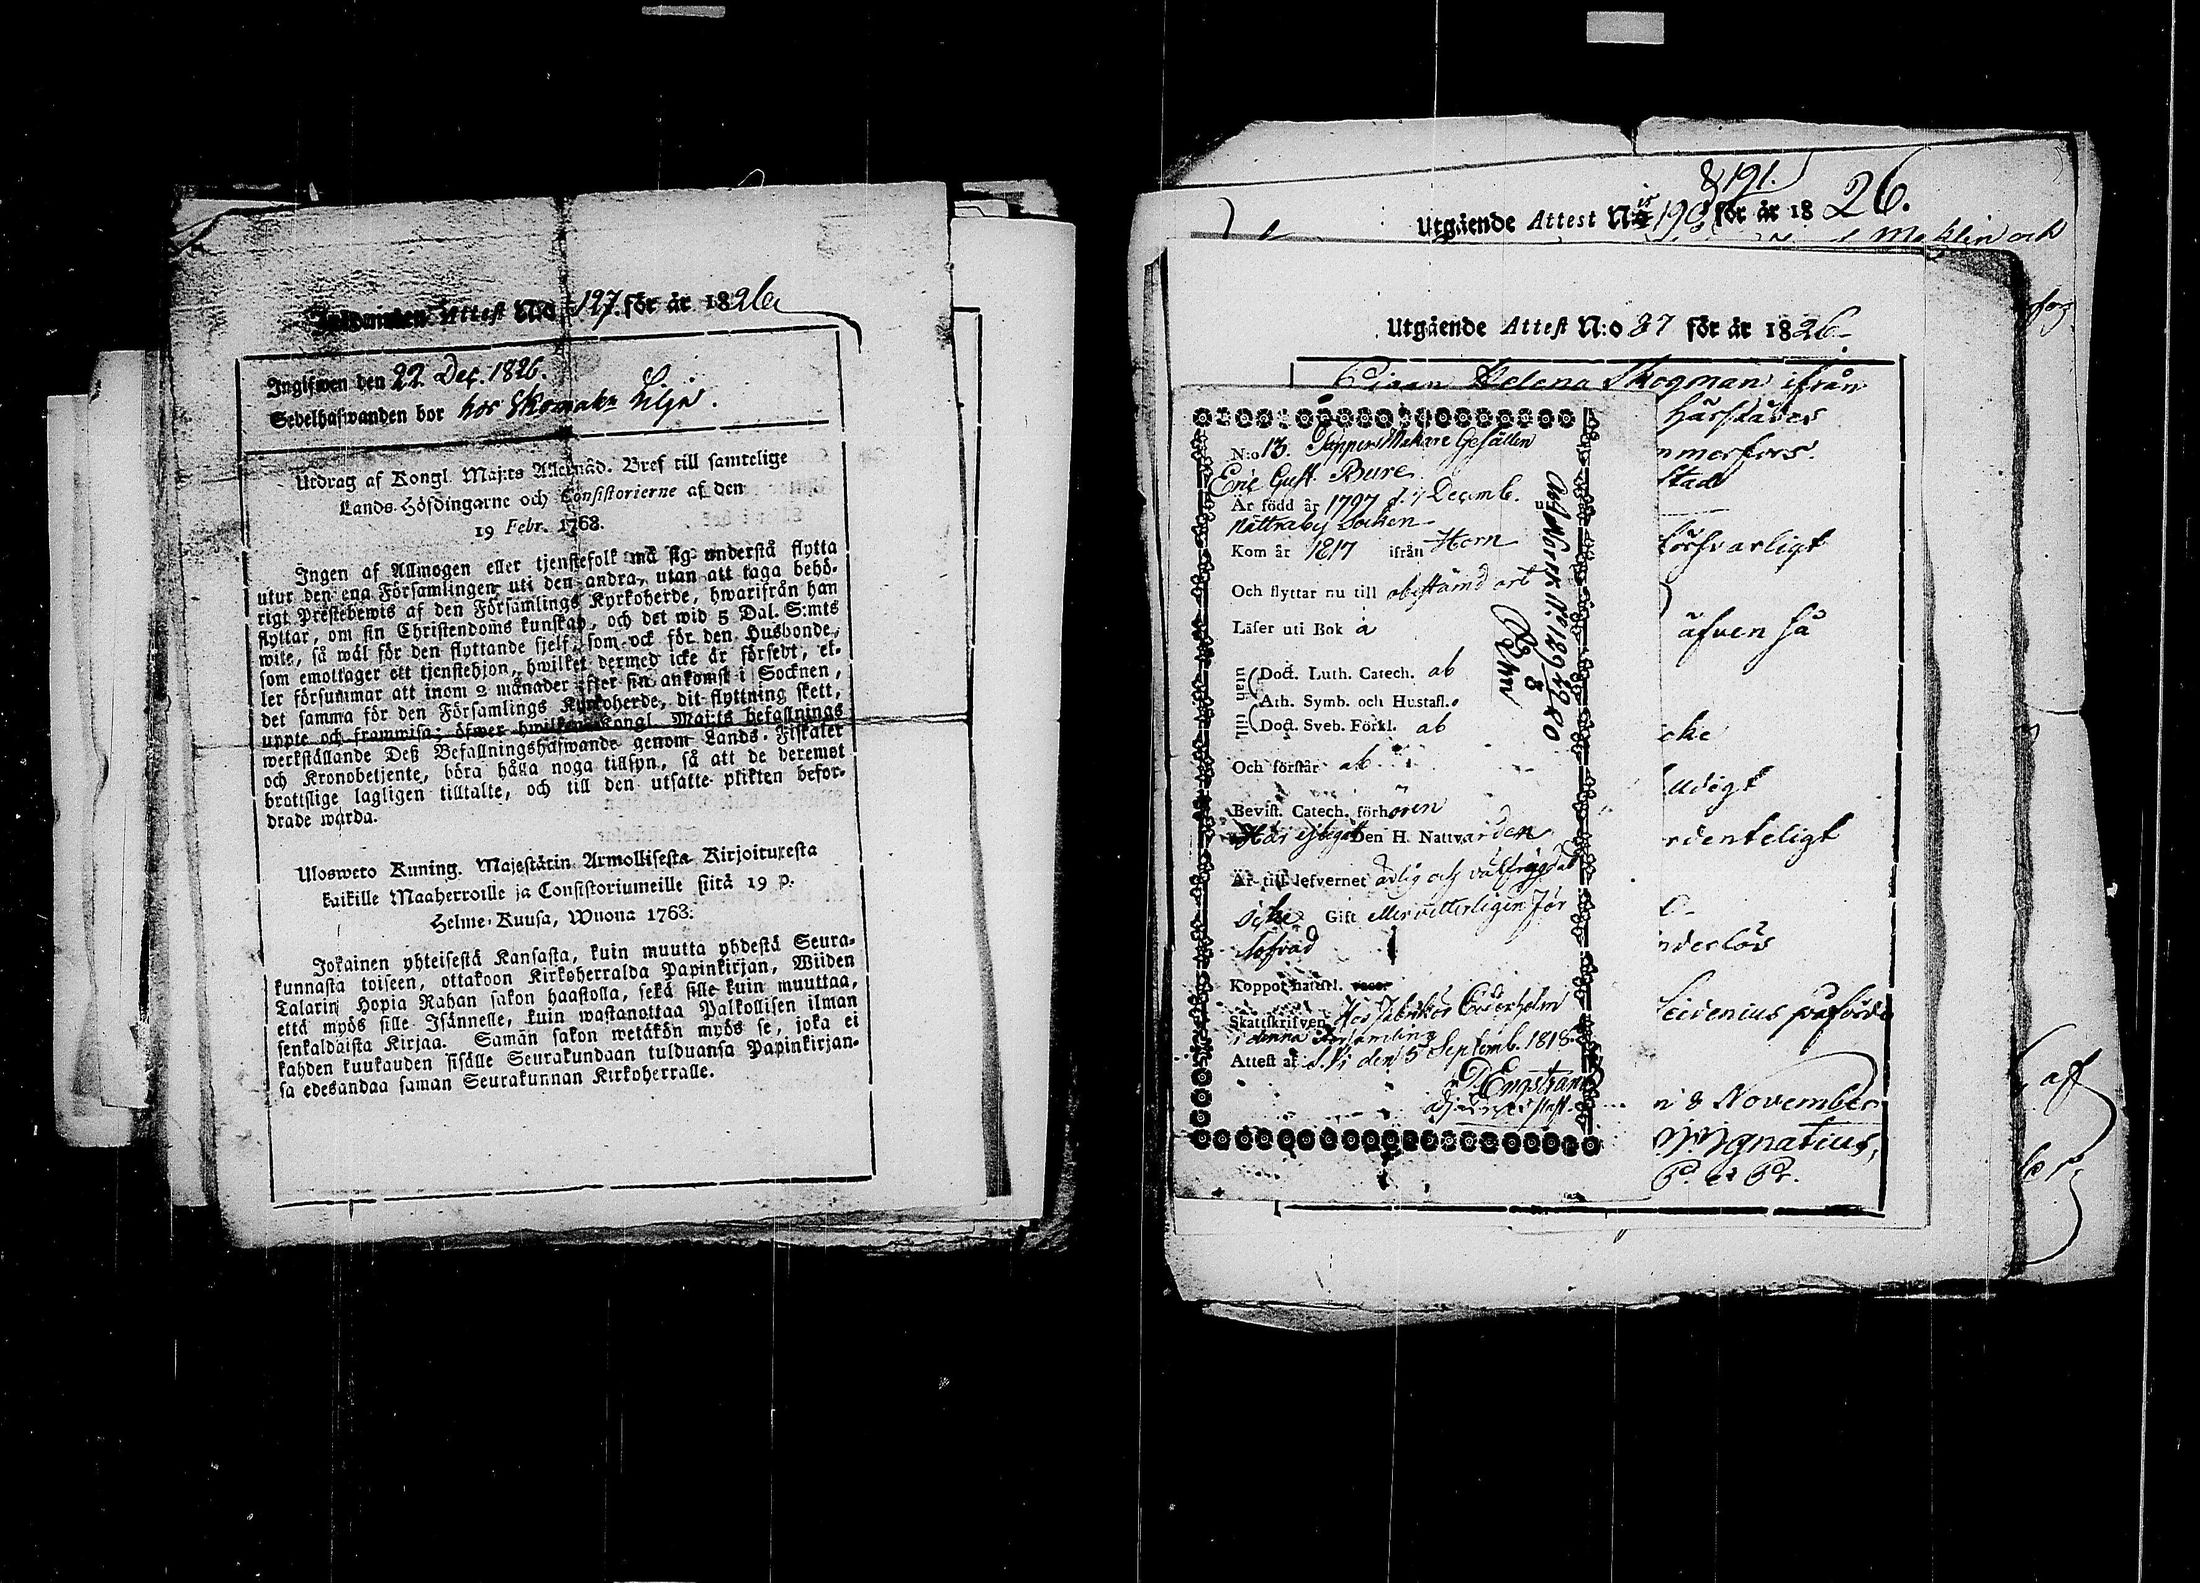 Inkommen Attest N:o 127. för år 1826
Ingifwen den 22 Dec. 1826.
Sedelhafwanden bor hos Skomakn Lilja.
Utdrag af Kongl. Maj:ts Allernåd. Bref till samtelige
Lands-Höfdingarne och Consistorierne af den
19 Febr. 1763.
Ingen af Allmogen eller tjenstefolk må sig understå flytta
utur den ena Församlingen uti den andra, utan att taga behö-
rigt Prestebewis af den Församlings Kyrkoherde, hwarifrån han
flyttar, om sin Christendoms kunskap, och det wid 5 Dal. S:mts
wite, så wäl för den flyttande sjelf, som ock för den Husbonde,
som emottager ett tjenstehjon, hwilket dermed icke är försedt, el-
ler försummar att inom 2 månader efter sin ankomst i Socknen,
det samma för den Församlings Kyrkoherde, dit flyttning skett,
uppte och framwisa; öfwer hwilken Kongl. Maj:ts befallnings
werkställande Deß Befallningshafwande genom Lands-Fiskaler
och Kronobetjente, böra hålla noga tillsyn, så att de deremot
brottslige lagligen tilltalte, och till den utsatte plikten befor-
drade warda.
Uloswero Kuning. Majestätin Armollisesta Kirjoituxesta
kaikille Maaherroille ja Consistoriumeille siitä 19 p.
Helme-Kuusa, Wuona 1763.
Jokainen yhteisestä Kansasta, kuin muutta yhdestä Seura-
kunnasta toiseen, ottakoon Kirkoherralda Papinkirjan, Wiiden
Talarin Hopia Rahan sakon haastolla, sekä sille kuin muuttaa,
että myös sille Isännelle, kuin wastanottaa Palkollisen ilman
senkaldaista Kirjaa. Samän sakon wetäkön myös se, joka ei
kahden kuukauden sisälle Seurakundaan tulduansa Papinkirjan-
sa edesandaa saman Seurakunnan Kirkoherralle.
& 191.
Utgående Attest N:is 190 för år 1826.
Meklin och
Utgående Attest N:o 87 för år 1826
Pigan Helena Skogman ifrån
härstädes
mmerfors.
stad
försvarligt
äfven så
cke
ludigt
rdenteligt
nderlös
n 8 November
Ignatius,
P. et Pr.
aff
N:o 13. Pappersmakare Gesällen
Eric Gust. Bure
Är född år 1797 d. 7 Decemb.
Nättraby Socken
Kom år 1817 ifrån Horn
Och flyttar nu till obestämd ort
Läser uti Bok a
utan till
Doct. Luth. Catech. ab
Ath. Symb. och Hustafl.
Doct. Sveb. Förkl. ab
Och förstår ab
Bevist. Catech. förhören
Har begått Den H. Nattvarden
Är till lefvernet ärlig och välfrägdad
icke Gift eller vitterligen för
lofvad
Koppor haft
Skattskrifven Hos Fabrikör Cederholm
i denna Församling
Attest af den 5 Septemb. 1818.
P. Engström